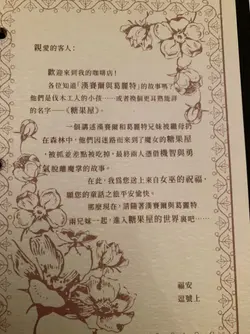 親愛的客人：
歡迎來到我的咖啡店！
各位知道「漢賽爾與葛麗特」的故事嗎？
他們是伐木工人的小孩──或者換個更耳熟能詳
的名字──《糖果屋》。
一個講述漢賽爾和葛麗特兄妹被繼母扔
在森林中，他們因迷路而來到了魔女的糖果屋，
被抓並差點被吃掉，最終兩人憑借機智與勇
氣脫離魔掌的故事。
在此，我為您送上來自女巫的祝福，
願您的童話之旅平安愉快。
那麼現在，請隨著漢賽爾與葛麗特
兩兄妹一起，進入糖果屋的世界裏吧……
福安
逗號上